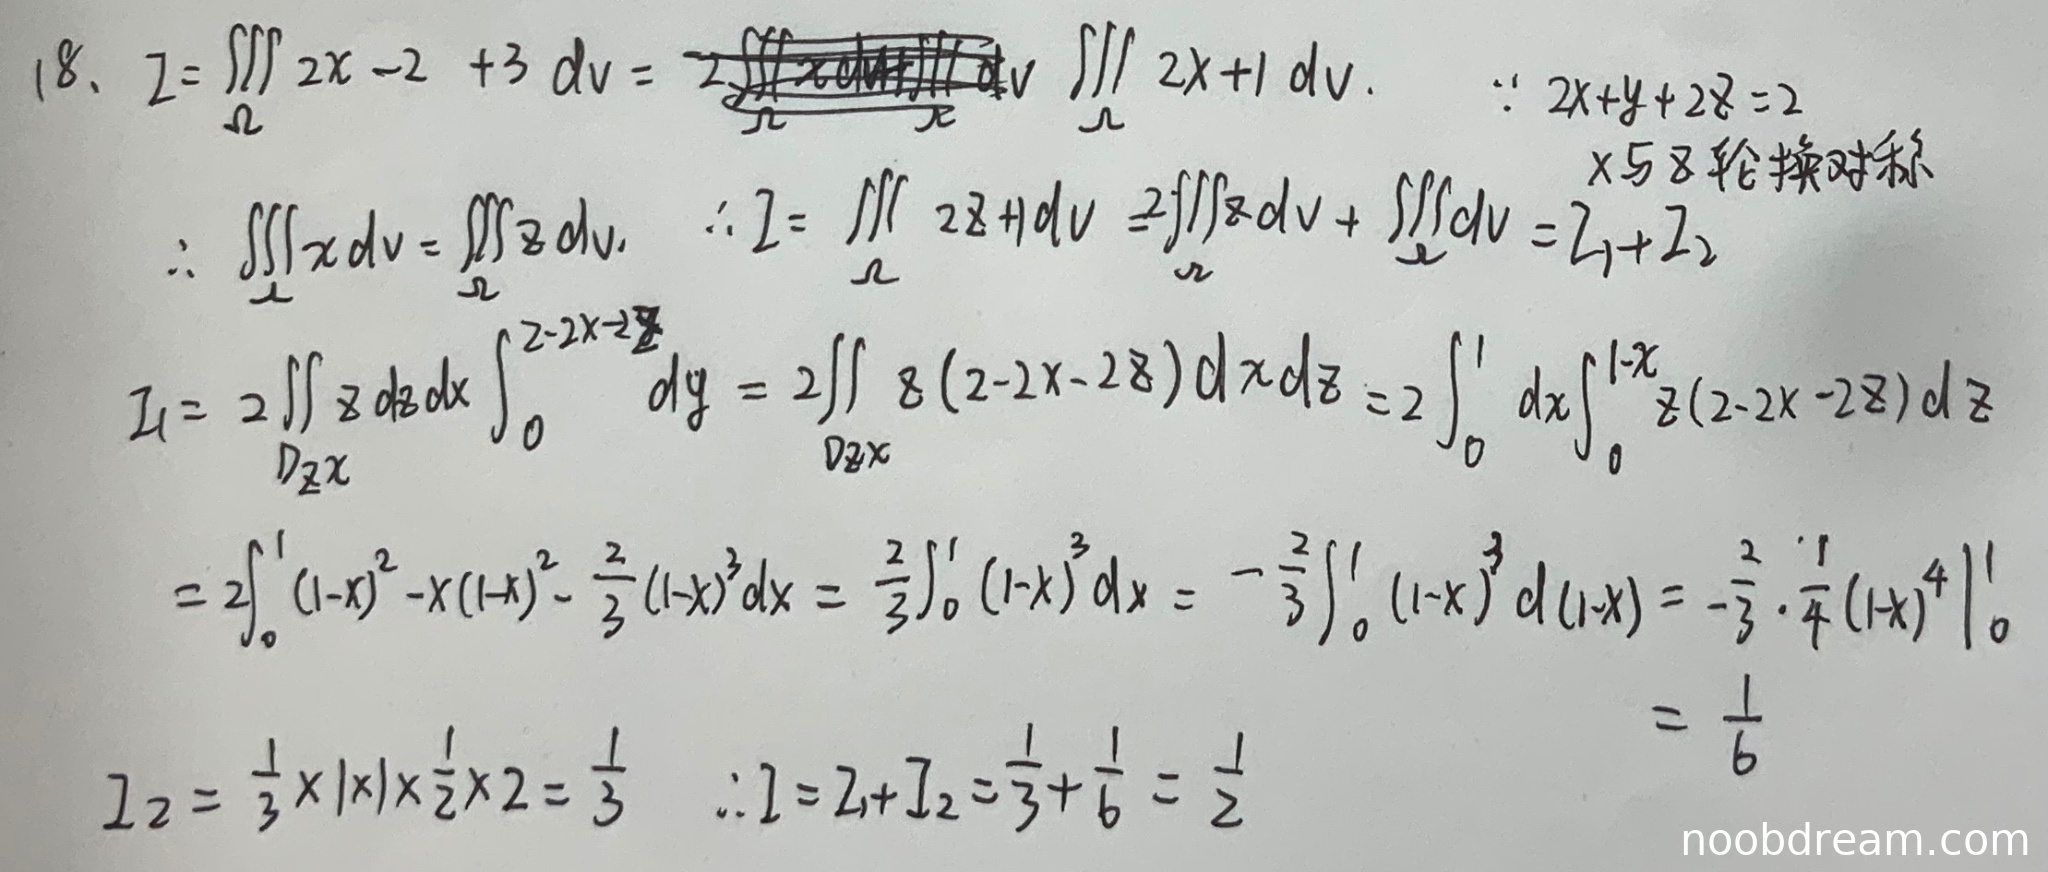 18. I = ∭_Ω 2x - 2 + 3 dv = ∭_Ω 2x+1 dv. ∵ 2x+y+2z=2
x与z轮换对称
∴ ∭_Ω x dv = ∭_Ω z dv. ∴ I = ∭_Ω 2z+1 dv = 2∭_Ω z dv + ∭_Ω dv = I₁+I₂
I₁ = 2∬_{Dzx} z dz dx ∫_0^{2-2x-2z} dy = 2∬_{Dzx} z(2-2x-2z) dx dz = 2∫_0^1 dx ∫_0^{1-x} z(2-2x-2z) dz
= 2∫_0^1 (1-x)² - x(1-x)² - 2/3 (1-x)³ dx = 2/3 ∫_0^1 (1-x)³ dx = - 2/3 ∫_0^1 (1-x)³ d(1-x) = - 2/3 · 1/4 (1-x)⁴ |_0^1
= 1/6
I₂ = 1/3 × 1×1× 1/2 × 2 = 1/3 ∴ I = I₁+I₂ = 1/3 + 1/6 = 1/2
noobdream.com